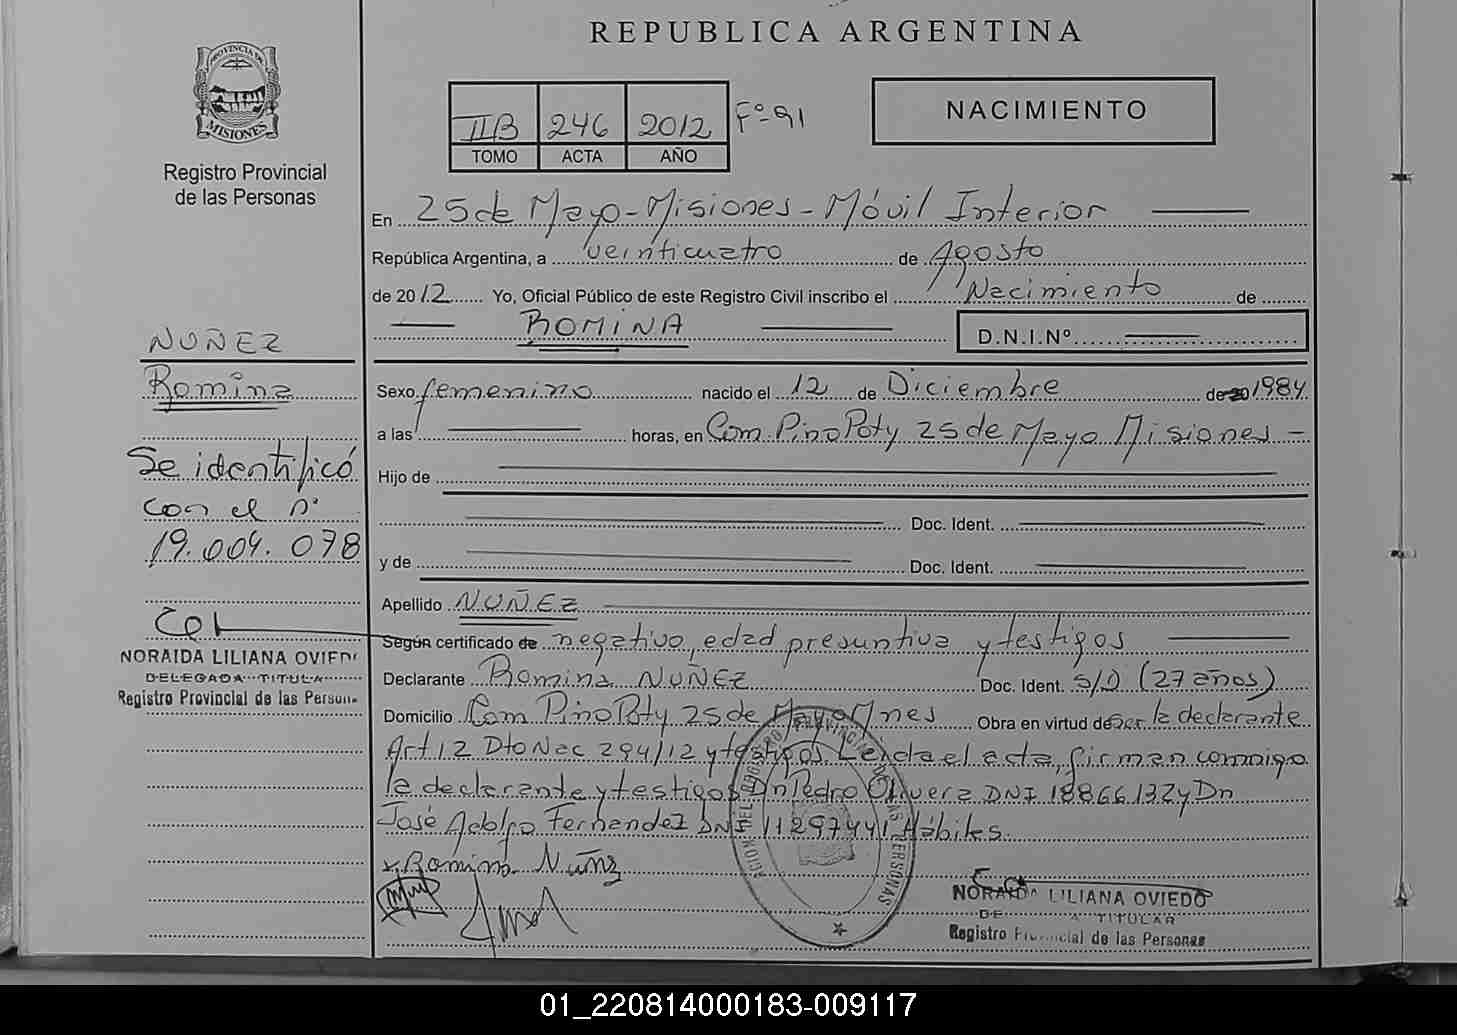 REPUBLICA ARGENTINA
PROVINCIA DE
MISIONES
Registro Provincial
de las Personas
IIB 246 2012 Fº-91
TOMO ACTA AÑO
NACIMIENTO
En 25 de Mayo - Misiones - Móvil Interior
República Argentina, a veinticuatro de Agosto
de 2012 Yo, Oficial Público de este Registro Civil inscribo el Nacimiento de
ROMINA D.N.I.Nº
NUÑEZ
Romina
Se identificó
con el nº
19.004.078
NORAIDA LILIANA OVIEDO
DELEGADA TITULA
Registro Provincial de las Person
Sexo femenino nacido el 12 de Diciembre de 20 1984
a las horas, en Com. Pino Poty 25 de Mayo Misiones -
Hijo de
Doc. Ident.
y de Doc. Ident.
Apellido NUÑEZ
Según certificado de negativo, edad presuntiva y testigos
Declarante Romina NUÑEZ Doc. Ident. S/D (27 años)
Domicilio Com Pino Poty 25 de Mayo Mnes Obra en virtud de ser la declarante
Art 12 Dto Nac 294/12 y testigos Leída el acta, firman conmigo
la declarante y testigos Dn Pedro Olivera DNI 18866132 y Dn
José Adolfo Fernendez DNI 11297441 Hábiles.
x Romina Nuñz
NORAIDA LILIANA OVIEDO
DE A TITULAR
Registro Provincial de las Personas
01_220814000183-009117